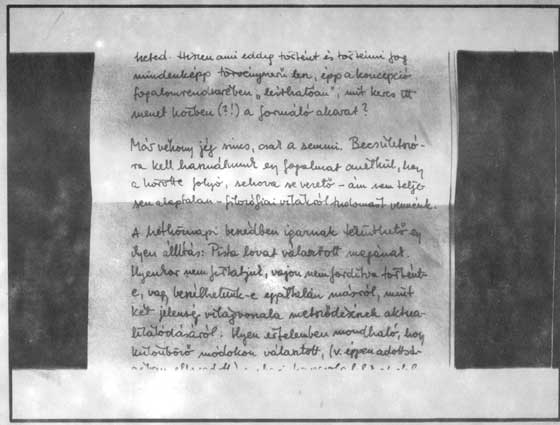 heted. Hiszen ami eddig történt és történni fog
mindenképp törvényszerű lesz, épp a koncepció
fogalomrendszerében „leírhatóan”; mit keres itt
menet közben (?!) a formáló akarat?
Már vékony jég sincs, csak a semmi. Becsületszó-
ra kell használnunk egy fogalmat anélkül, hogy
a körötte folyó, sehova se vezető – ám nem telje-
sen alaptalan – filozófiai vitákról tudomást vennénk.
A hétköznapi beszédben igaznak tekinthető egy
ilyen állítás: Pista lovat választott magának.
Ilyenkor nem firtatjuk, vajon nem fordítva történt-
e, vagy beszélhetünk-e egyáltalán másról, mint
két jelenség világvonala metsződésének aktua-
lizálódásáról. Ilyen értelemben mondható, hogy
különböző módokon választott, (v. éppen adott